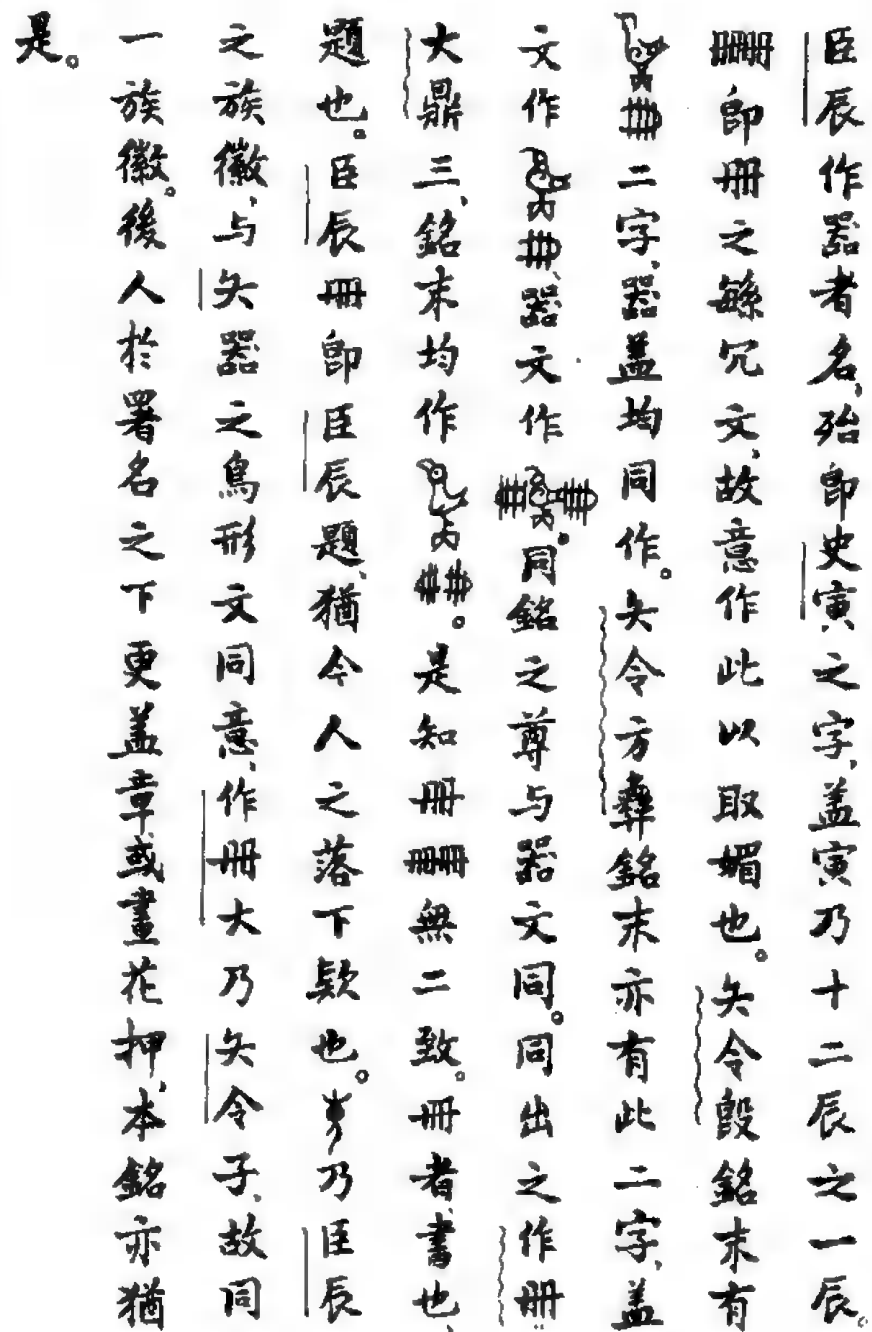 臣辰作器者名、殆即史寅之字、蓋寅乃十二辰之一辰。
𠕁即冊之緐冗文、故意作此以取媚也。矢令𣪘銘末有
二字、器蓋均同作。矢令方彝銘末亦有此二字、蓋
文作、器文作。同銘之尊与器文同。同出之作冊
大鼎三、銘末均作。是知冊𠕁無二致。冊者書也、
題也。臣辰冊即臣辰題、猶今人之落下款也。乃臣辰
之族徽、与矢器之鳥形文同意、作冊大乃矢令子、故同
一族徽。後人於署名之下更盖章或畫花押、本銘亦猶
是。